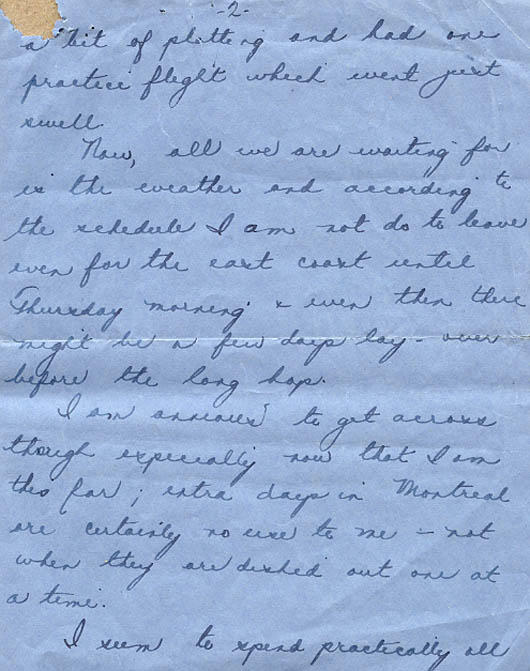 -2-
a bit of plotting and had one
practice flight which went just
swell.
Now, all we are waiting for
is the weather and according to
the schedule I am not do to leave
even for the east coast until
Thursday morning & even then there
might be a few days lay-over
before the long hop.
I am anxious to get across
though especially now that I am
this far; extra days in Montreal
are certainly no use to me - not
when they are dished out one at
a time.
I seem to spend practically all